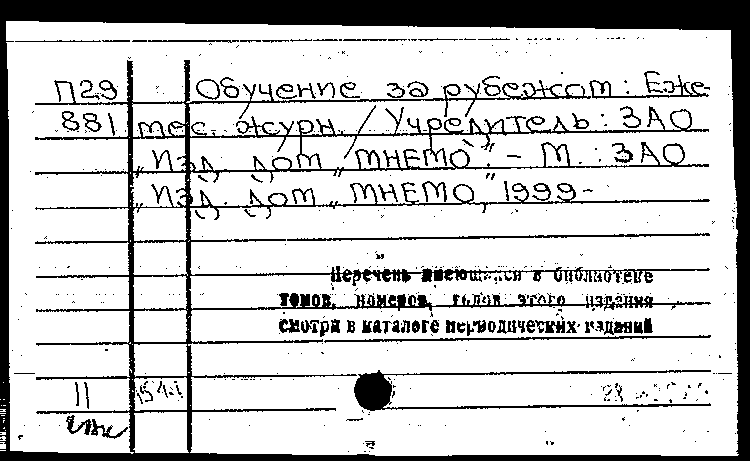 П29 Обучение за рубежом: Еже-
881 мес. журн. / Учредитель: ЗАО
„Изд. дом „МНЕМО“. – М.: ЗАО
„Изд. дом „МНЕМО“, 1999–
Перечень имеющихся в библиотеке
томов, номеров, годов этого издания
смотри в каталоге периодических изданий
11